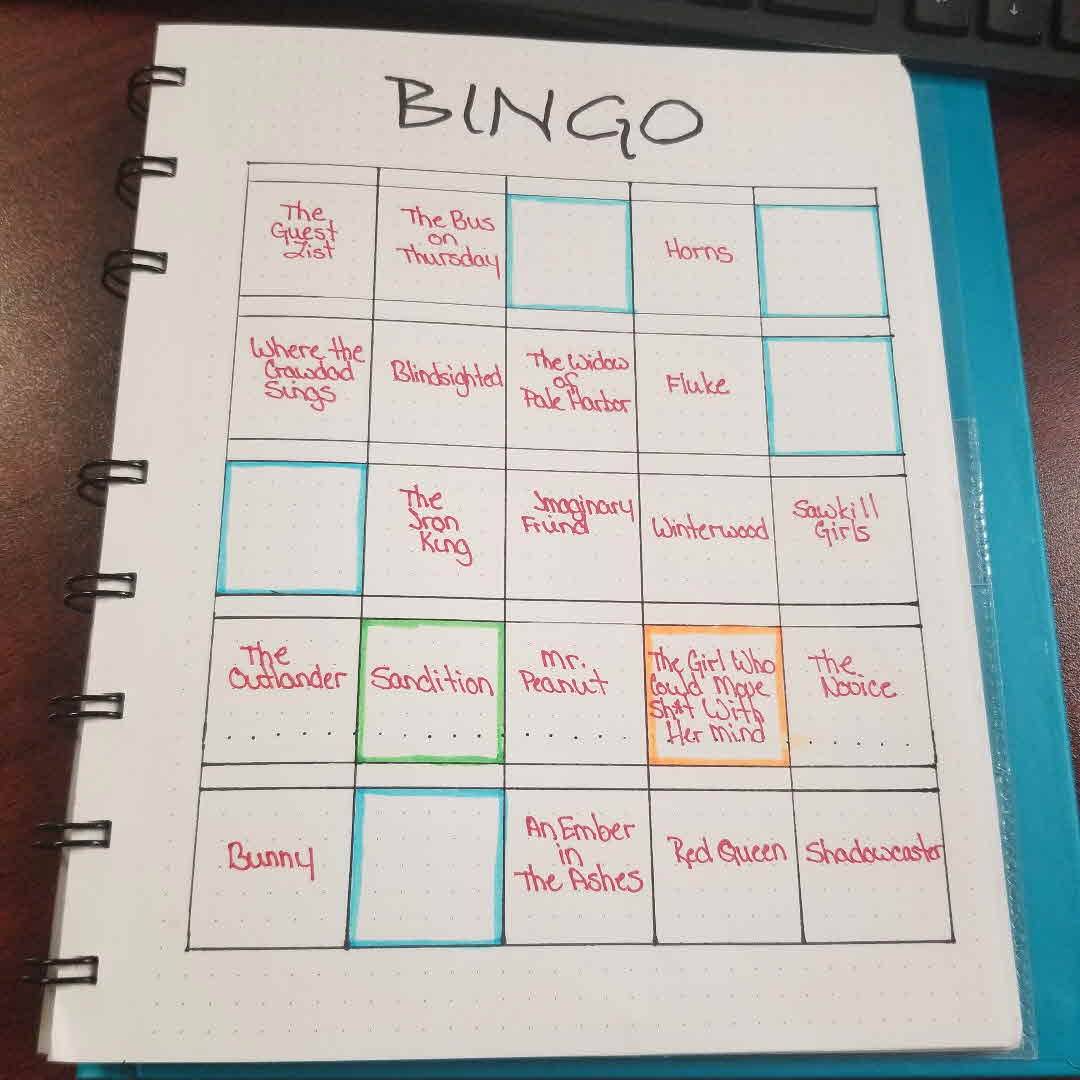 BINGO
The
Guest
List
The Bus
on
Thursday
Horns
Where the
Crawdad
Sings
Blindsighted
The Widow
of
Pale Harbor
Fluke
The
Iron
King
Imaginary
Friend
Winterwood
Sawkill
Girls
The
Outlander
Sandition
Mr.
Peanut
The Girl Who
Could Move
Sh*t With
Her Mind
The
Novice
Bunny
An Ember
in
The Ashes
Red Queen
Shadowcaster